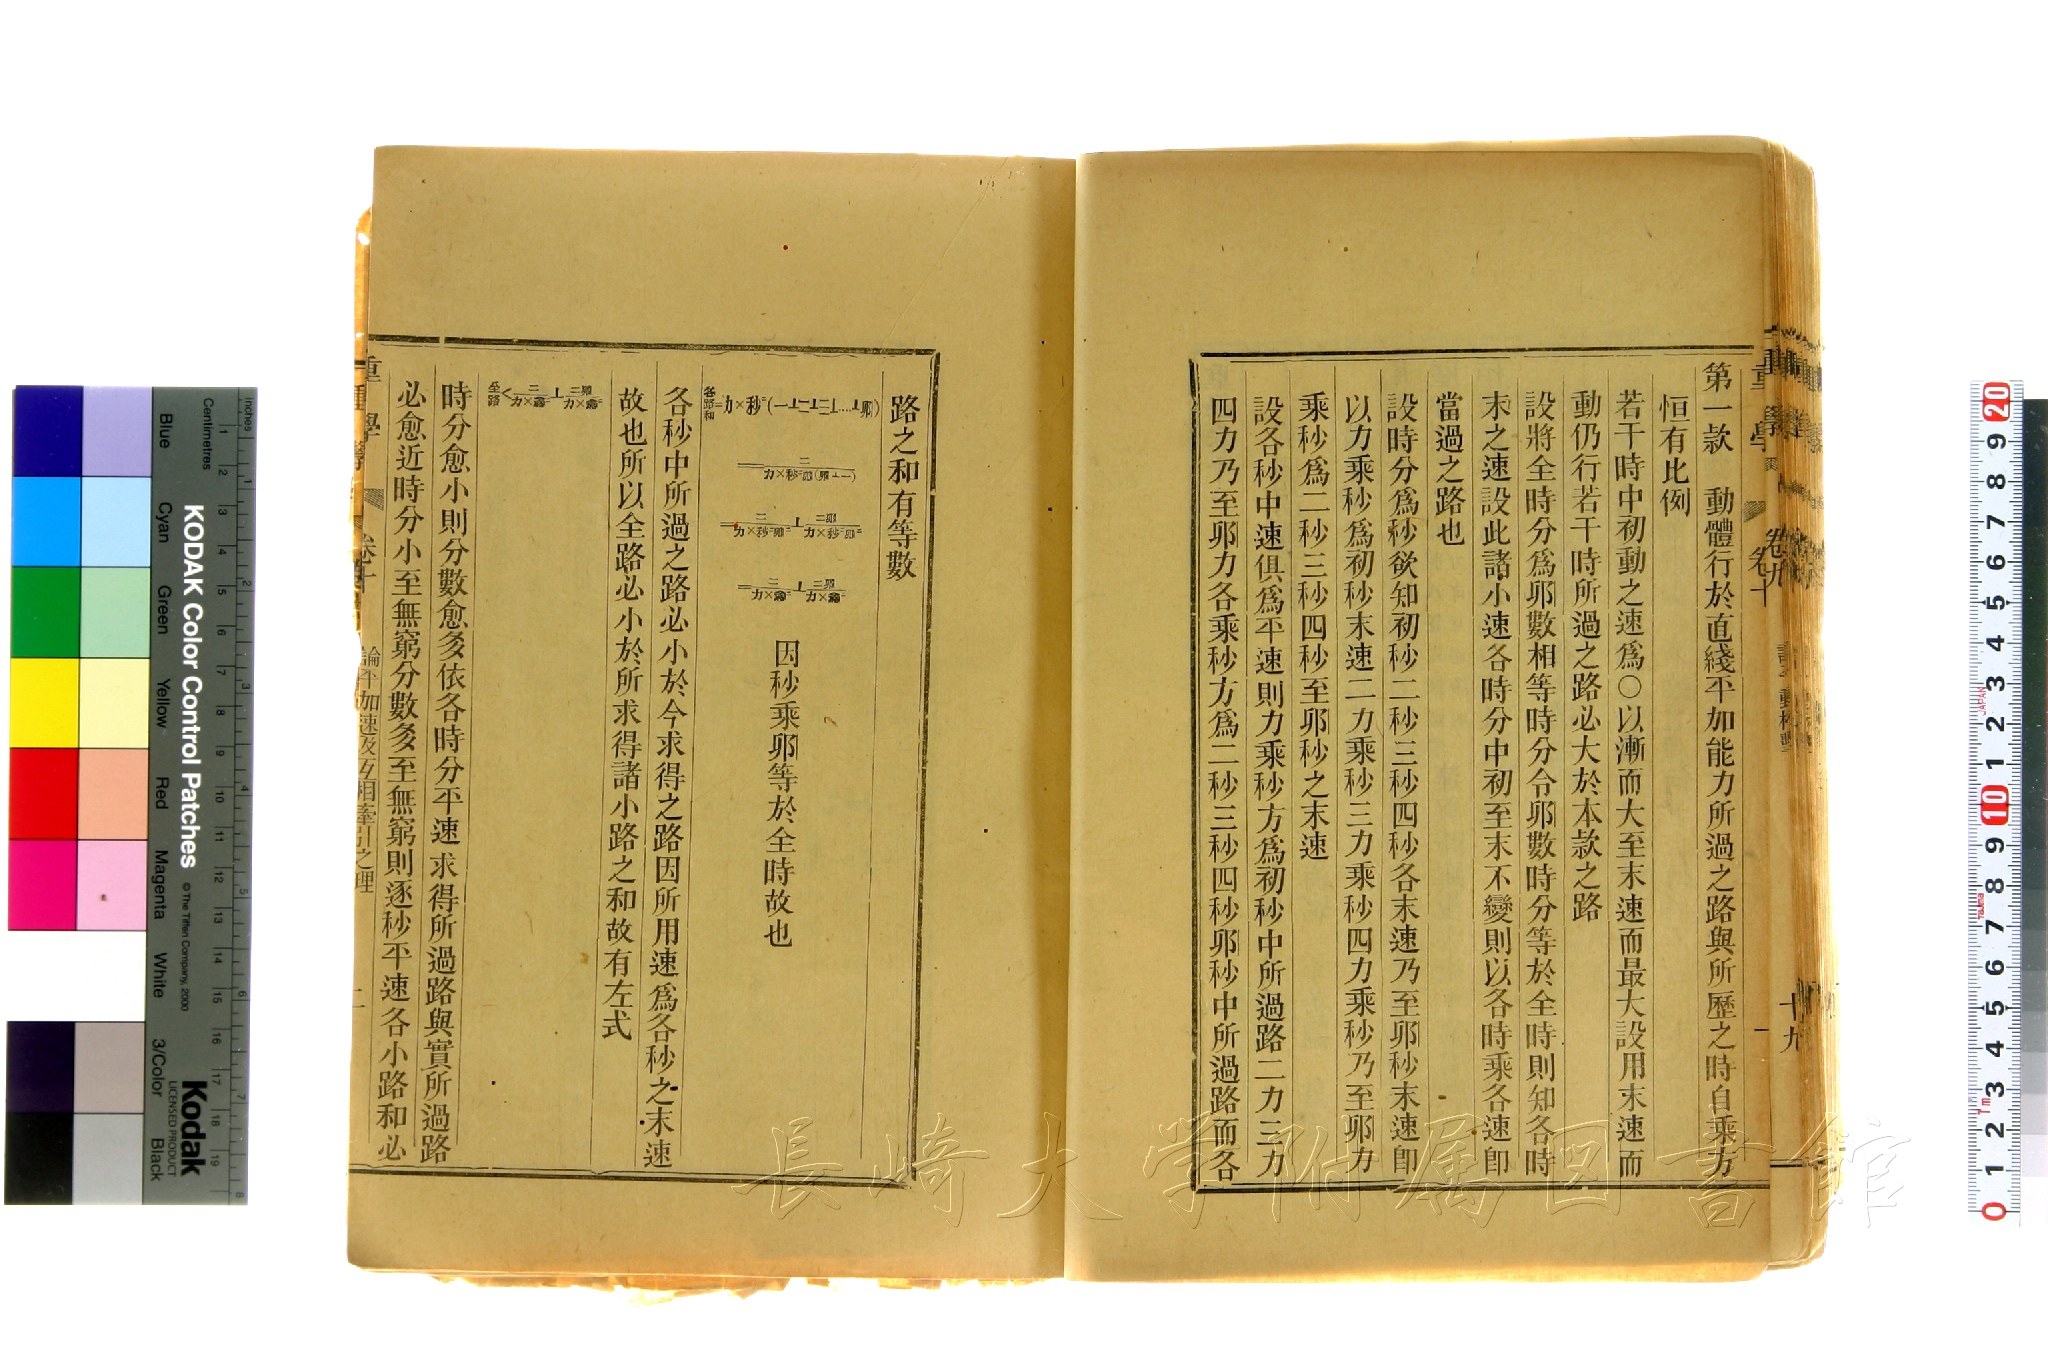 第一款　動體行於直綫平加能力所過之路與所歷之時自乘方
恒有比例
若干時中初動之速爲○以漸而大至末速而最大設用末速而
動仍行若干時所過之路必大於本款之路
設將全時分爲卯數相等時分令卯數時分等於全時則知各時
末之速設此諸小速各時分中初至末不變則以各時乘各速卽
當過之路也
設時分爲秒欲知初秒二秒三秒四秒各末速乃至卯秒末速卽
以力乘秒爲初秒末速二力乘秒三力乘秒四力乘秒乃至卯力
乘秒爲二秒三秒四秒至卯秒之末速
設各秒中速俱爲平速則力乘秒方爲初秒中所過路二力三力
四力乃至卯力各乘秒方爲二秒三秒四秒卯秒中所過路而各
路之和有等數
各路和=力×秒²(一⊥二⊥三⊥....⊥卯)
因秒乘卯等於全時故也
各秒中所過之路必小於今求得之路因所用速爲各秒之末速
故也所以全路必小於所求得諸小路之和故有左式
時分愈小則分數愈多依各時分平速求得所過路與實所過路
必愈近時分小至無窮分數多至無窮則逐秒平速各小路和必
重學
卷十
論平加速及互相牽引之理
二
長崎大学附属図書館
KODAK Color Control Patches
© The Tiffen Company, 2000
Kodak
LICENSED PRODUCT
inches
Centimetres
Blue
Cyan
Green
Yellow
Red
Magenta
White
3/Color
Black